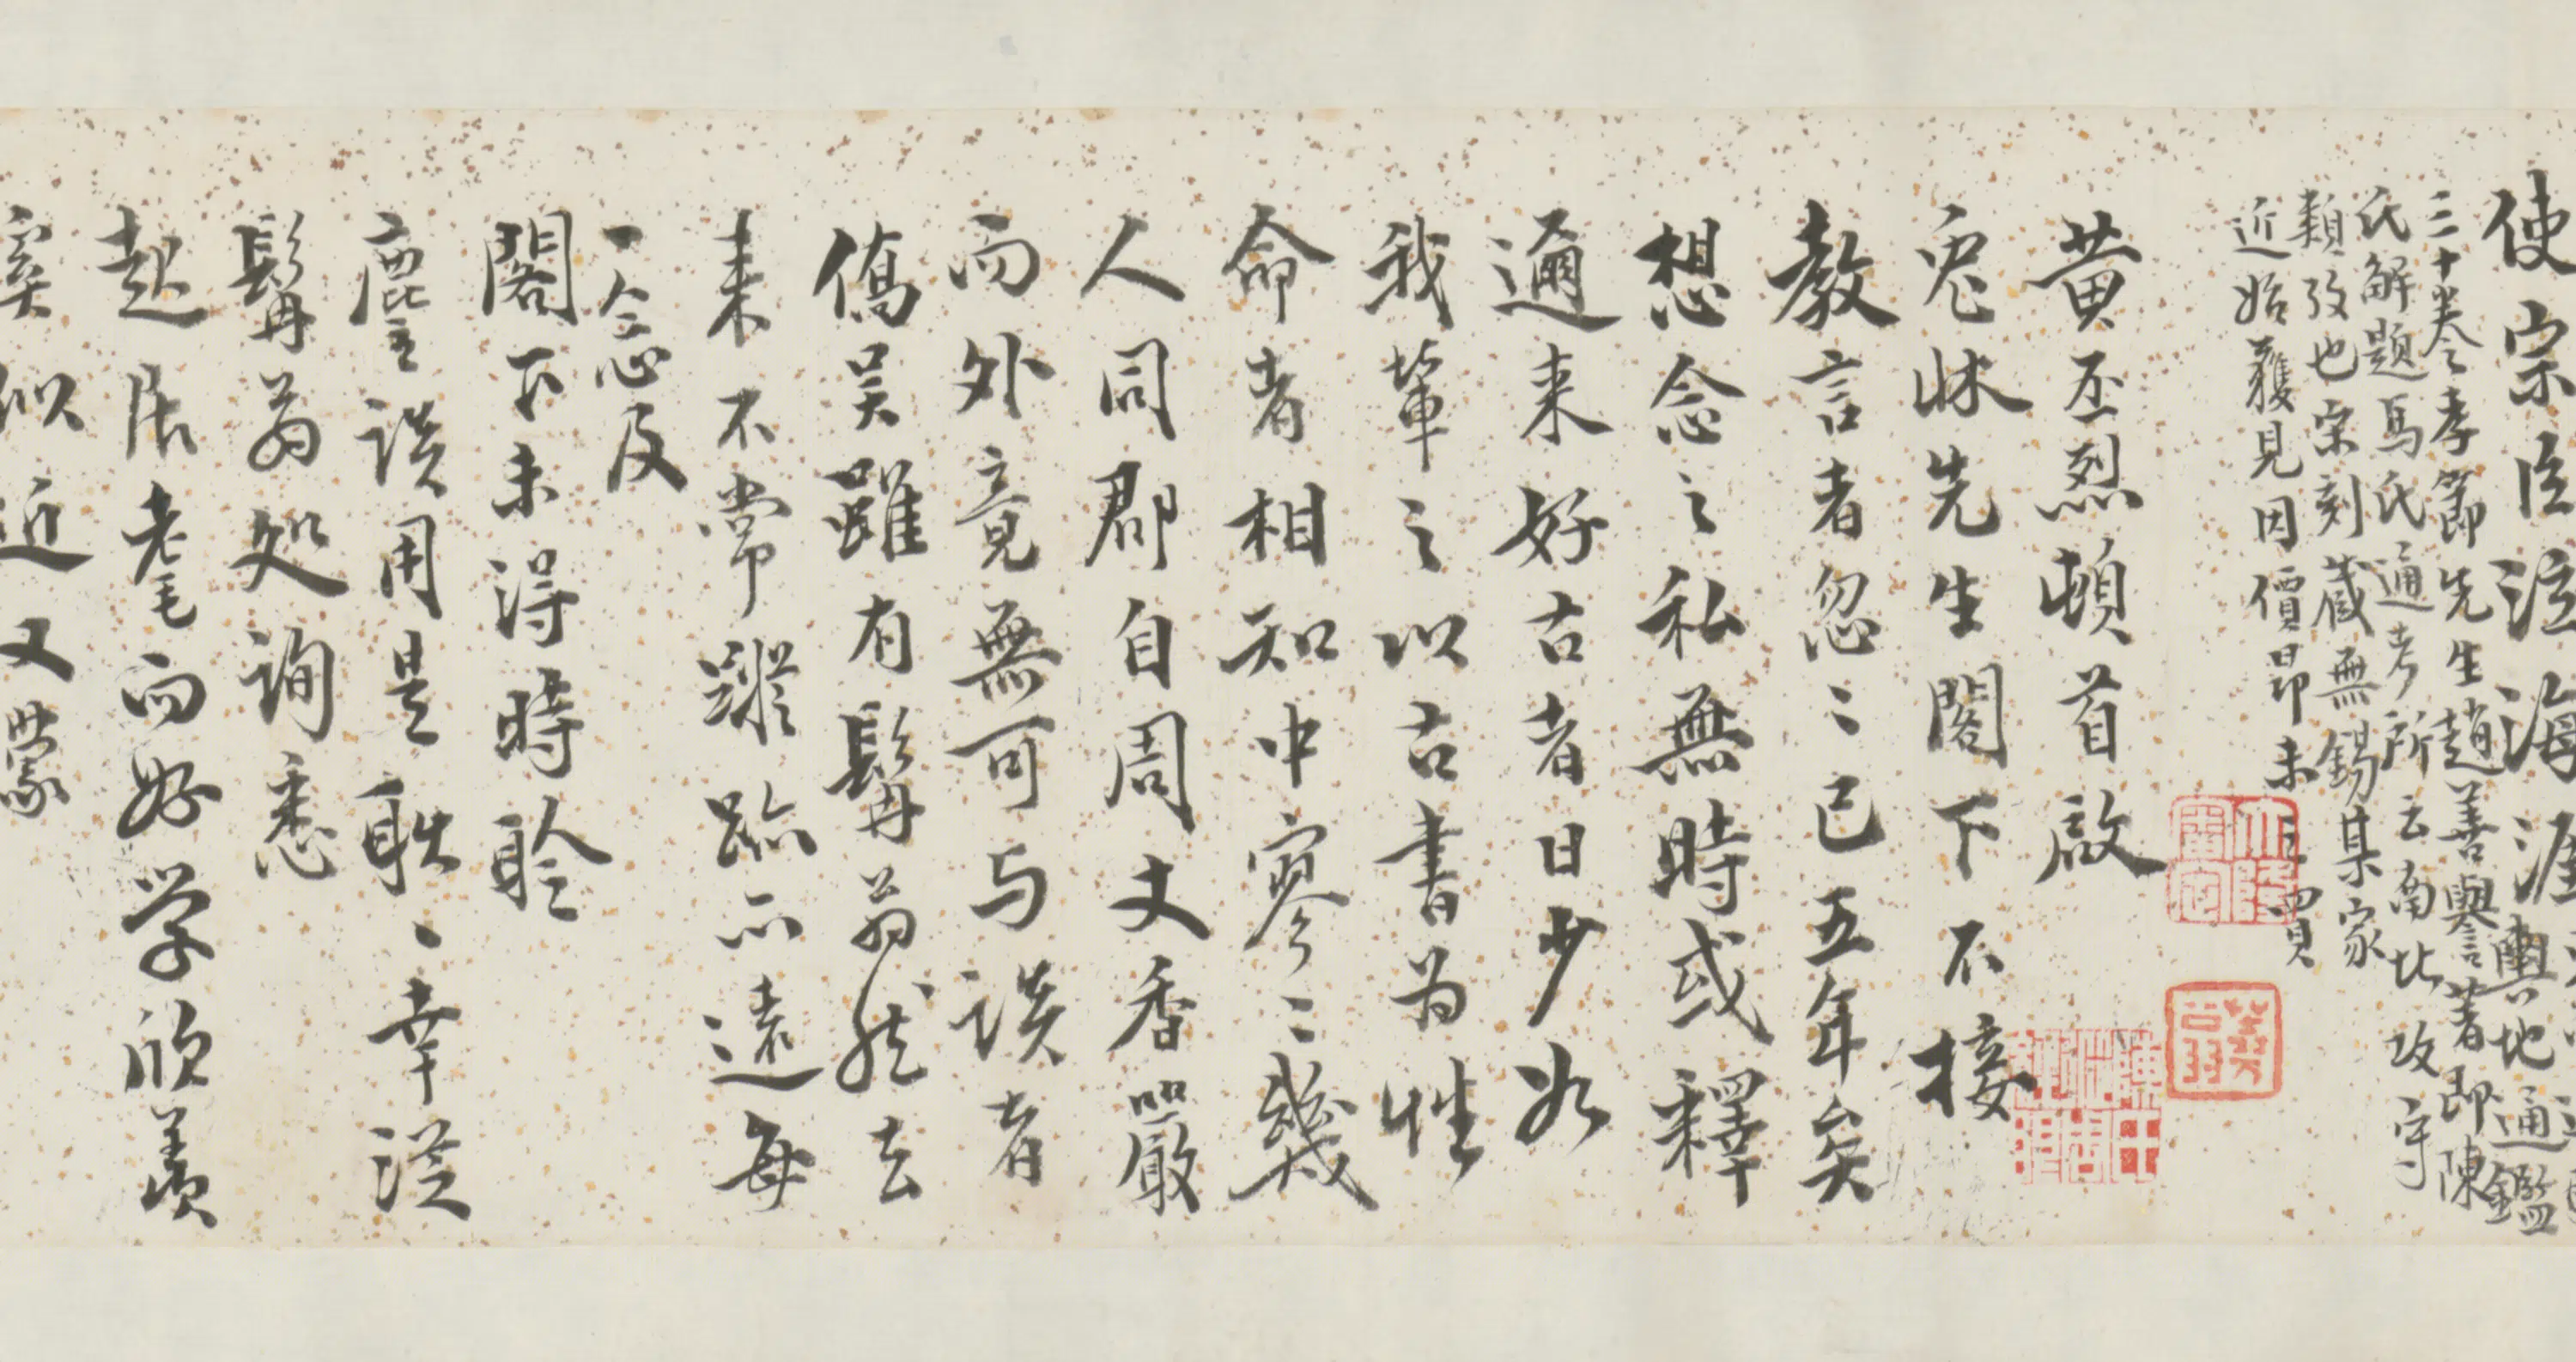 使宗臣泣海涯
輿地通鑑
三十卷孝節先生趙善譽著即陳
氏解題馬氏通考所云南北攻守
類攷也宋刻藏無錫某家
近始獲見因價昂未買
黃丕烈頓首啟
兔牀先生閣下不接
教言者忽〻已五年矣
想念之私無時或釋
邇来好古者日少如
我輩之以古書為性
命者相知中寥〻幾
人同郡自周丈香嚴
而外竟無可与談者
僑吴雖有鬅翁然去
来不常蹤跡亦遠每
一念及
閣下未得時聆
麈談用是耿〻幸從
鬅翁処詢悉
起居老而好学欣羡
奚似近又蒙